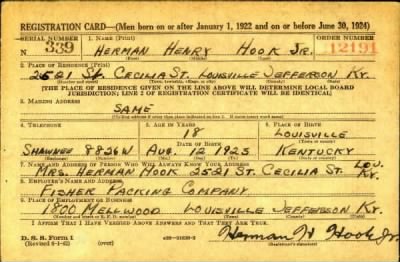 REGISTRATION CARD—(Men born on or after January 1, 1922 and on or before June 30, 1924)
SERIAL NUMBER 1. NAME (Print) ORDER NUMBER
339 HERMAN HENRY HOOK JR. 12191
(First) (Middle) (Last)
2. PLACE OF RESIDENCE (Print)
2521 St. CECILIA ST. LOUISVILLE JEFFERSON KY.
(Number and street) (Town, township, village, or city) (County) (State)
[THE PLACE OF RESIDENCE GIVEN ON THE LINE ABOVE WILL DETERMINE LOCAL BOARD
JURISDICTION; LINE 2 OF REGISTRATION CERTIFICATE WILL BE IDENTICAL]
3. MAILING ADDRESS
SAME
4. TELEPHONE 5. AGE IN YEARS 6. PLACE OF BIRTH
18 LOUISVILLE
DATE OF BIRTH
SHAWNEE 8836W AUG. 12 1923 KENTUCKY
(Exchange) (Number) (Mo.) (Day) (Yr.) (State or country)
7. NAME AND ADDRESS OF PERSON WHO WILL ALWAYS KNOW YOUR ADDRESS
MRS. HERMAN HOOK 2521 ST. CECILIA ST. LOU. KY.
8. EMPLOYER'S NAME AND ADDRESS
FISHER PACKING COMPANY
9. PLACE OF EMPLOYMENT OR BUSINESS
1800 MELLWOOD LOUISVILLE JEFFERSON KY.
(Number and street or R. F. D. number) (Town) (County) (State)
I AFFIRM THAT I HAVE VERIFIED ABOVE ANSWERS AND THAT THEY ARE TRUE.
D. S. S. Form 1 Herman H Hook Jr.
(Registrant's signature)